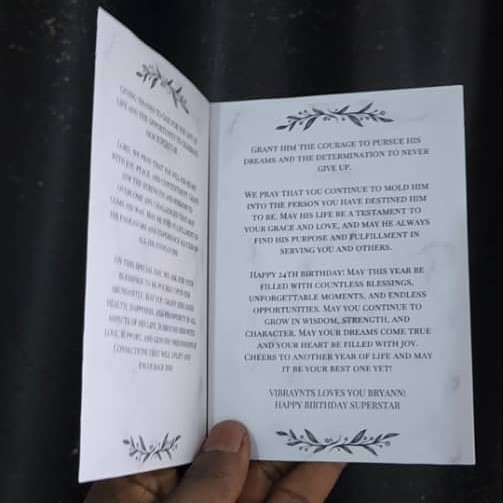 Giving thanks to God for the gift of
life and the opportunity to celebrate
our superstar
Lord, we pray that you fill his heart
with joy, peace, and contentment. Grant
him the strength and wisdom to
overcome any challenges that may
come his way. May he
his endeavors and experience success in
all his endeavors.
On this special day, we ask for your
blessings to be poured upon him
abundantly. May you grant him good
health, happiness, and prosperity in all
aspects of his life. Surround him with
love, support, and genuine friendships
connections that will uplift and
encourage him
Grant him the courage to pursue his
dreams and the determination to never
give up.
We pray that you continue to mold him
into the person you have destined him
to be. May his life be a testament to
your grace and love, and may he always
find his purpose and fulfillment in
serving you and others.
Happy 24th birthday! May this year be
filled with countless blessings,
unforgettable moments, and endless
opportunities. May you continue to
grow in wisdom, strength, and
character. May your dreams come true
and your heart be filled with joy.
Cheers to another year of life and may
it be your best one yet!
VIBRAYNTS LOVES YOU BRYANN!
HAPPY BIRTHDAY SUPERSTAR